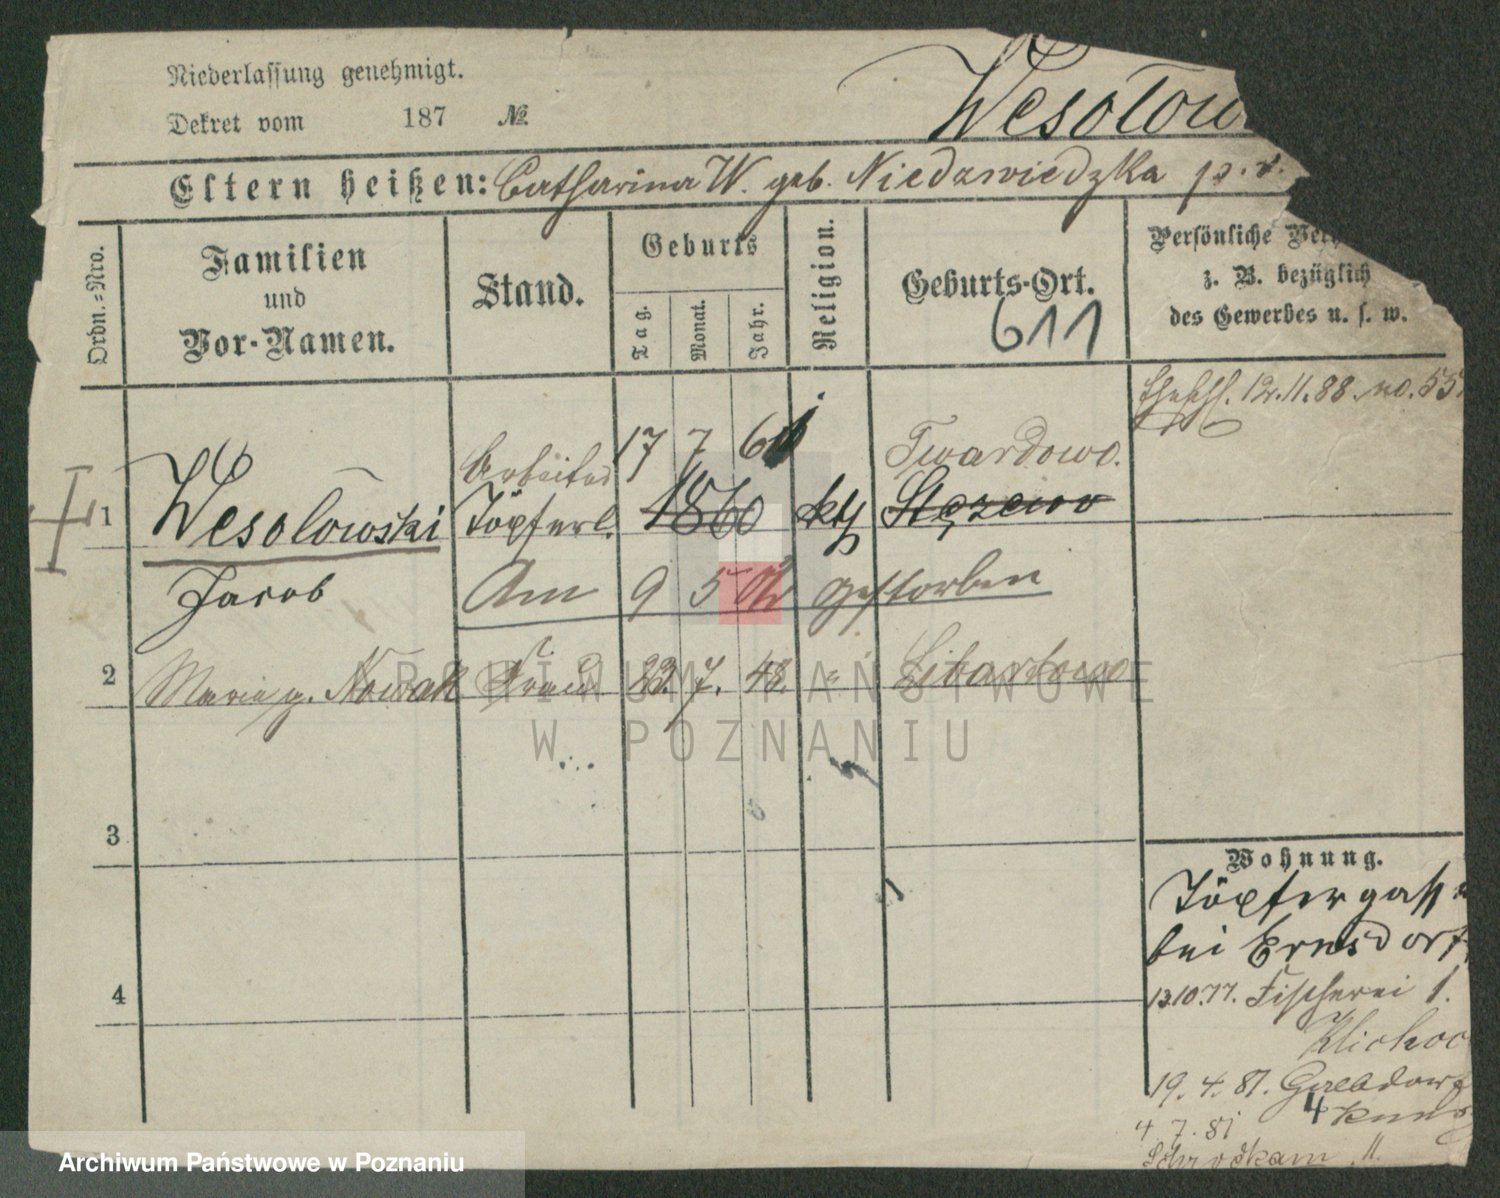 Niederlassung genehmigt.
Dekret vom 187 №
Wesolow
Eltern heißen: Catharina W. geb. Niedzwiedzka p. v.
Ordn.-Nro.
Familien und Vor-Namen.
Stand.
Geburts
Tag.
Monat.
Jahr.
Religion.
Geburts-Ort.
611
Persönliche Ver
z. B. bezüglich
des Gewerbes u. s. w.
12.11.88. no. 55
Arbeiter 17 7 61 Twardowo.
1 Wesolowski Töpferl. 1860 kth Stęzewo
Jacob Am 9 5 gestorben
2 Maria g. Nowak Frau 23. 7. 48. " Libartowo
3
4
Wohnung.
Töpfergasse
bei Ernsdorf
13.10.77. Fischerei 1.
Klichoc
19. 4. 81.
4
4 7. 81
Schrodkam 11.
ARCHIWUM PAŃSTWOWE
W POZNANIU
Archiwum Państwowe w Poznaniu